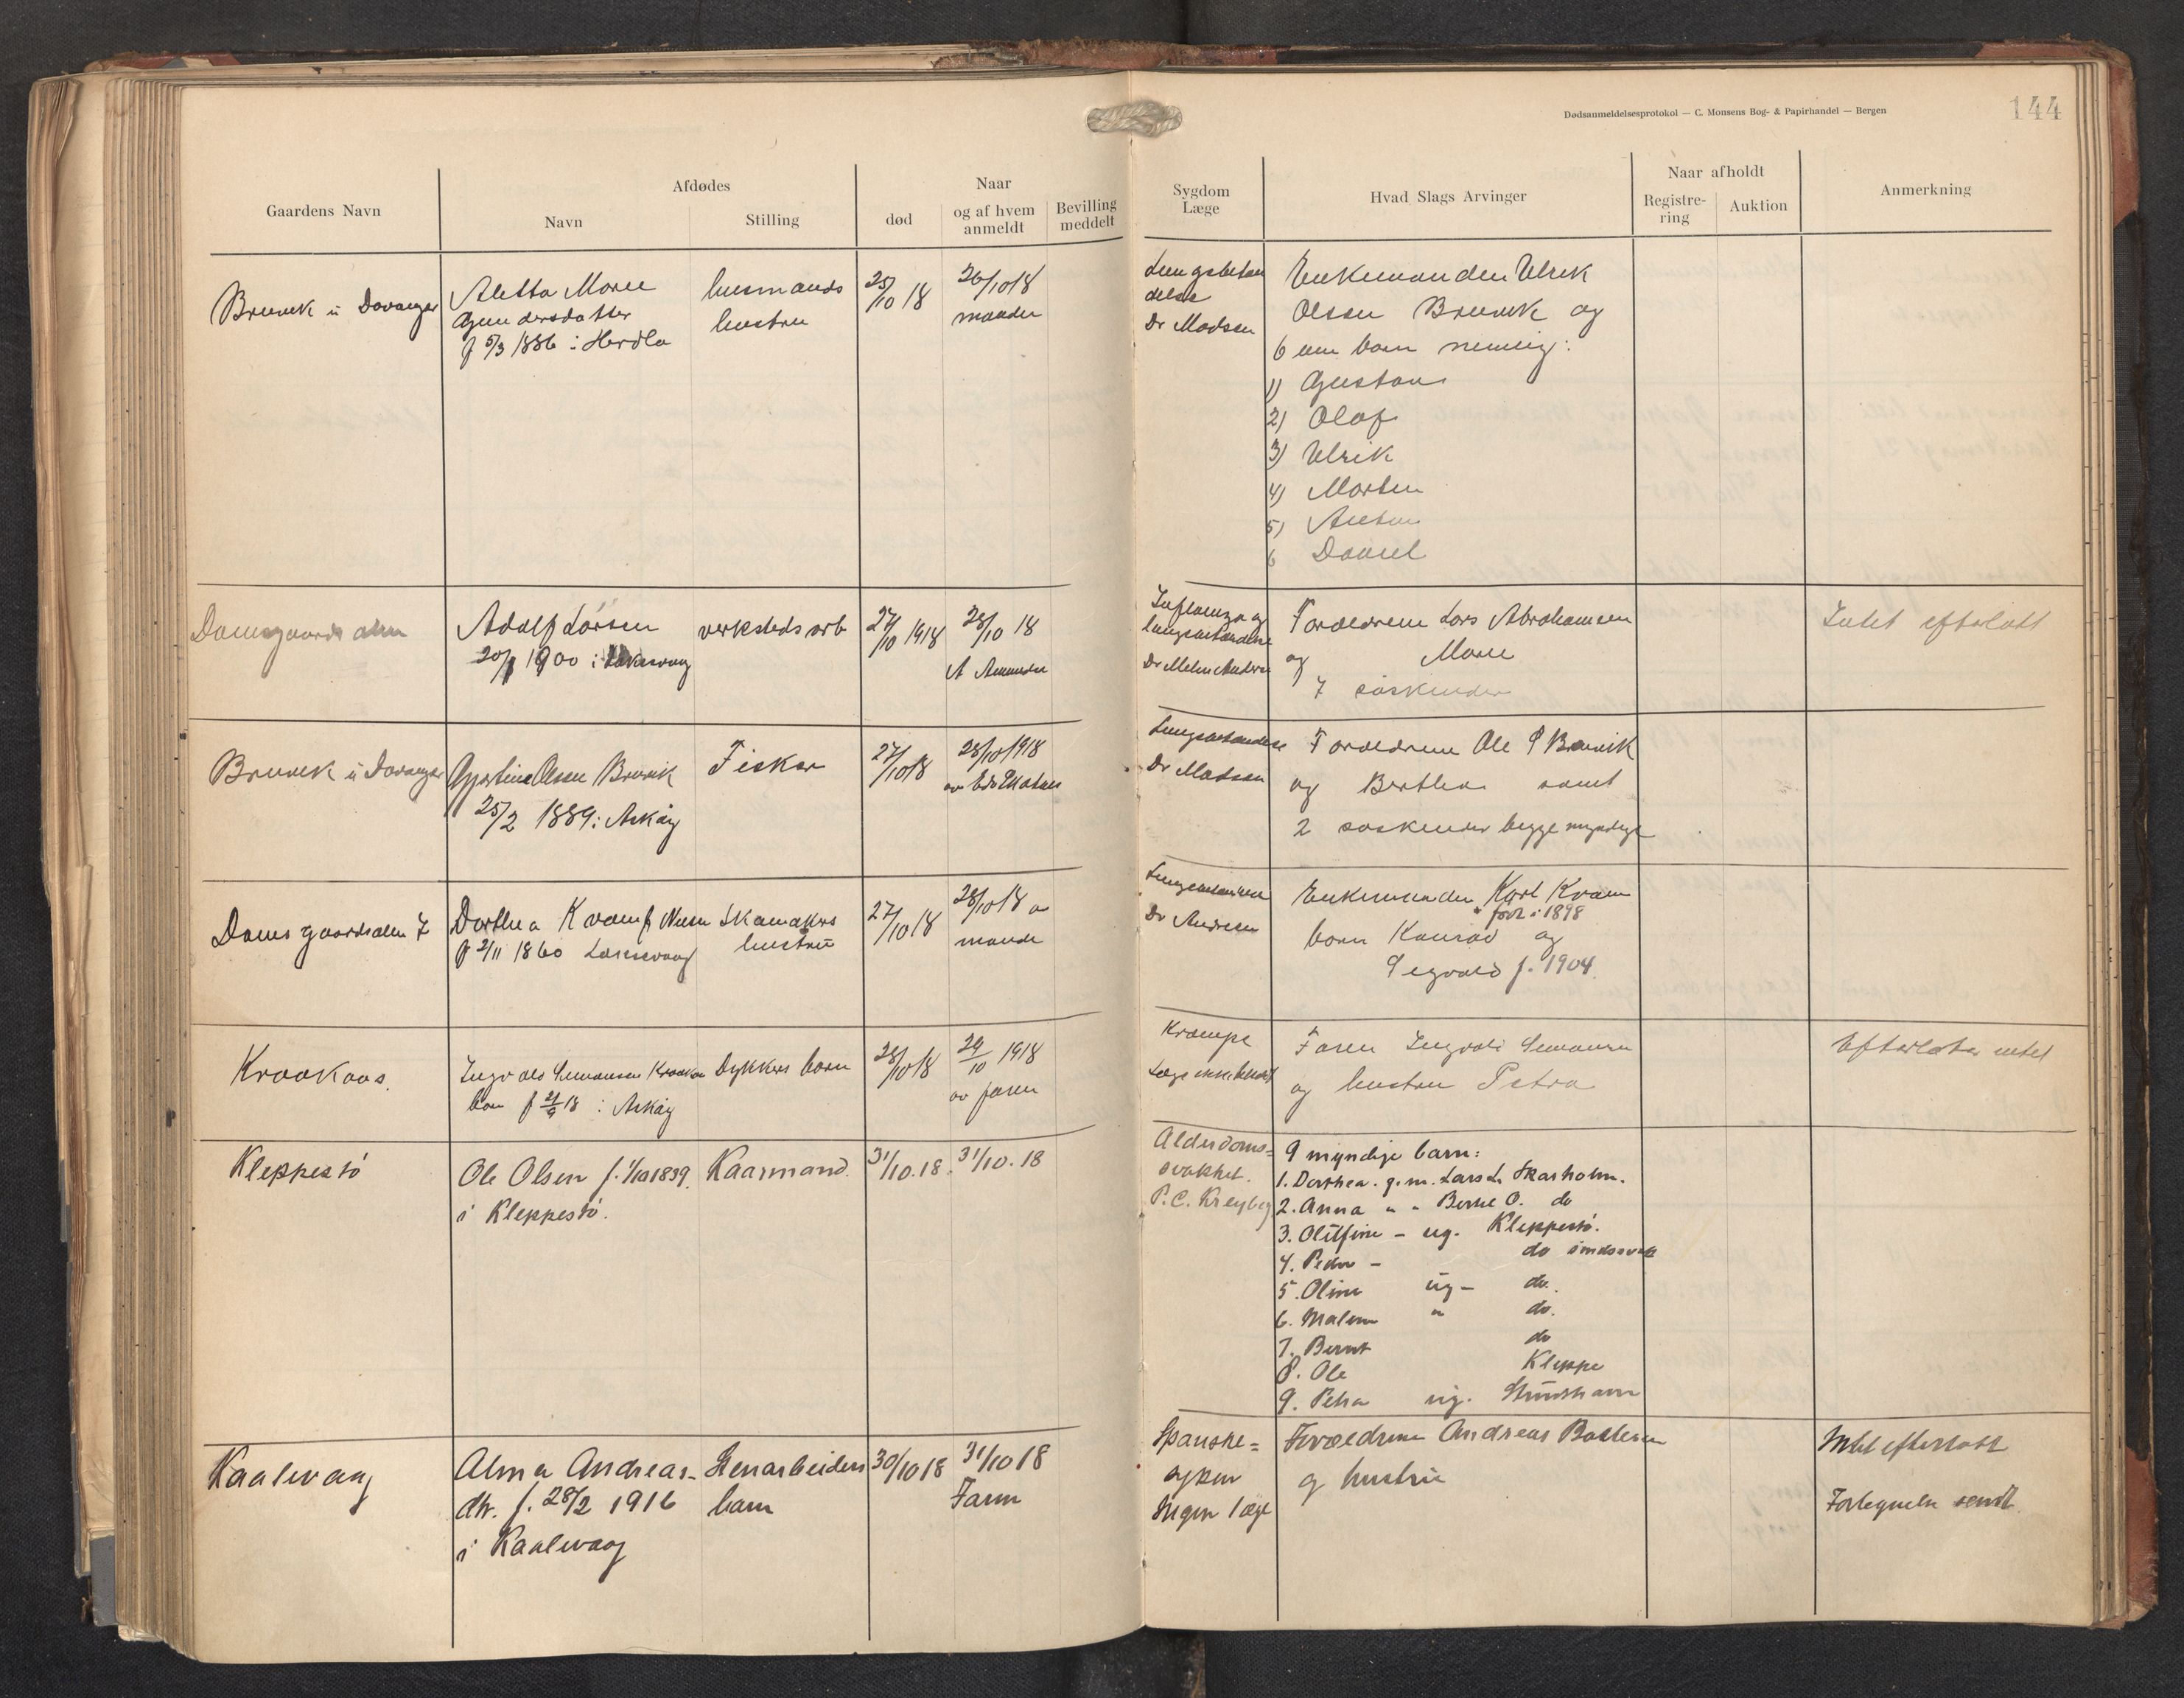 Dødsanmeldelsesprotokol — C. Monsens Bog- & Papirhandel — Bergen
144
Gaardens Navn
Afdødes
Navn
Stilling
Naar
død
og af hvem anmeldt
Bevilling meddelt
Sygdom
Læge
Hvad Slags Arvinger
Naar afholdt
Registre-
ring
Auktion
Anmerkning
Bruvik i Davanger
Aletta Marie
Gundersdatter
f 5/3 1886 i Herdla
husmands
hustru
25/10 18
26/10 18
manden
Lungebetæn
delse
Dr Madsen
Enkemanden Ulrik
Olsen Bruvik og
6 um barn nemlig:
1) Gustav
2) Olaf
3) Ulrik
4) Morten
5) Anton
6 Daniel
Damsgaards alm
Adolf Larsen
1900 i Laksevaag
verksteds arb
27/10 1918
28/10 18
Influenza og
lungebetændelse
Forældrene Lars Abrahamsen
og Marie
7 søskender
Intet efterlatt
Bruvik i Davanger
Olsen Bruvik
25/2 1889 i Askøy
Fisker
27/10 18
28/10 1918
Lungebetændelse
Dr Madsen
Forældrene Ole Bruvik
og Berthe samt
2 søskender begge myndige
Damsgaardsalm 7
Dorthea Kvam f Nilsen
f 2/11 1860 Laksevaag
Skomakers
hustru
27/10 18
28/10 18 av
mande
Lungebetændelse
Dr Andresen
Enkemanden Karl Kvam
født i 1898
barn Konrad og
Sigvald f. 1904
Kraakaas
Ingvald Simonsen
barn f 18 i Askøy
Dykkers barn
28/10 18
29/10 1918
av faren
Krampe
Læge ikke
Faren Ingvald Simonsen
og hustru Petra
Efterlater intet
Kleppestø
Ole Olsen f. 1/10 1839
i Kleppestø.
Kaarmand.
31/10.18.
31/10.18
Alderdoms=
svakhet.
P.C. Kreyberg
9 myndige barn:
1. Dorthea. g.m. Lars L. Skarholm.
2. Anna " " Bertel O. do
3. Olufine - ug. Kleppestø.
4. Peder - do sindssvak
5. Oline ug - do.
6. Malene " do.
7. Bernt do
8. Ole Kleppe
9. Petra ug.
Kaalevaag
Alma Andreas-
dtr. f. 28/2 1916
i Kaalevaag
Stenarbeiders
barn
30/10 18
31/10 18
Faren
Spanske=
syken
Ingen læge
Forældrene Andreas
og hustru
Intet efterlatt
Fortegnelse sendt.